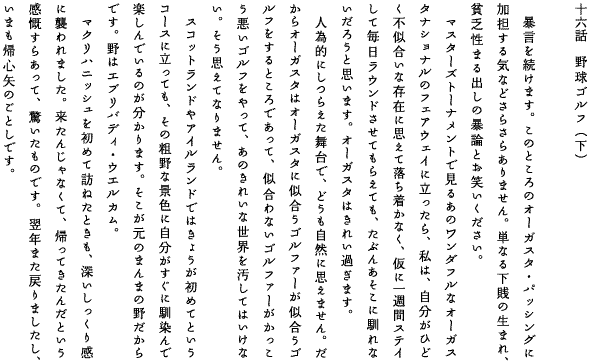 十六話　野球ゴルフ（下）
　暴言を続けます。このところのオーガスタ・バッシングに
加担する気などさらさらありません。単なる下賤の生まれ、
貧乏性まる出しの暴論とお笑いください。
　マスターズトーナメントで見るあのワンダフルなオーガス
タナショナルのフェアウェイに立ったら、私は、自分がひど
く不似合いな存在に思えて落ち着かなく、仮に一週間ステイ
して毎日ラウンドさせてもらえても、たぶんあそこに馴れな
いだろうと思います。オーガスタはきれい過ぎます。
　人為的にしつらえた舞台で、どうも自然に思えません。だ
からオーガスタはオーガスタに似合うゴルファーが似合うゴ
ルフをするところであって、似合わないゴルファーがかっこ
う悪いゴルフをやって、あのきれいな世界を汚してはいけな
い。そう思えてなりません。
　スコットランドやアイルランドではきょうが初めてという
コースに立っても、その粗野な景色に自分がすぐに馴染んで
楽しんでいるのが分かります。そこが元のまんまの野だから
です。野はエブリバディ・ウエルカム。
　マクリハニッシュを初めて訪ねたときも、深いしっくり感
に襲われました。来たんじゃなくて、帰ってきたんだという
感慨すらあって、驚いたものです。翌年また戻りましたし、
いまも帰心矢のごとしです。